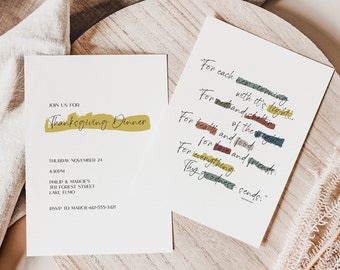 JOIN US FOR
Thanksgiving Dinner
THURSDAY NOVEMBER 24
4:30PM
PHILIP & MARCIE'S
3131 FOREST STREET
LAKE ELMO
RSVP TO MARCIE 612-555-3421
"For each new morning
with it's light,
For rest and shelter
of the night,
For health and food,
for love and friends,
For everything
Thy goodness sends."